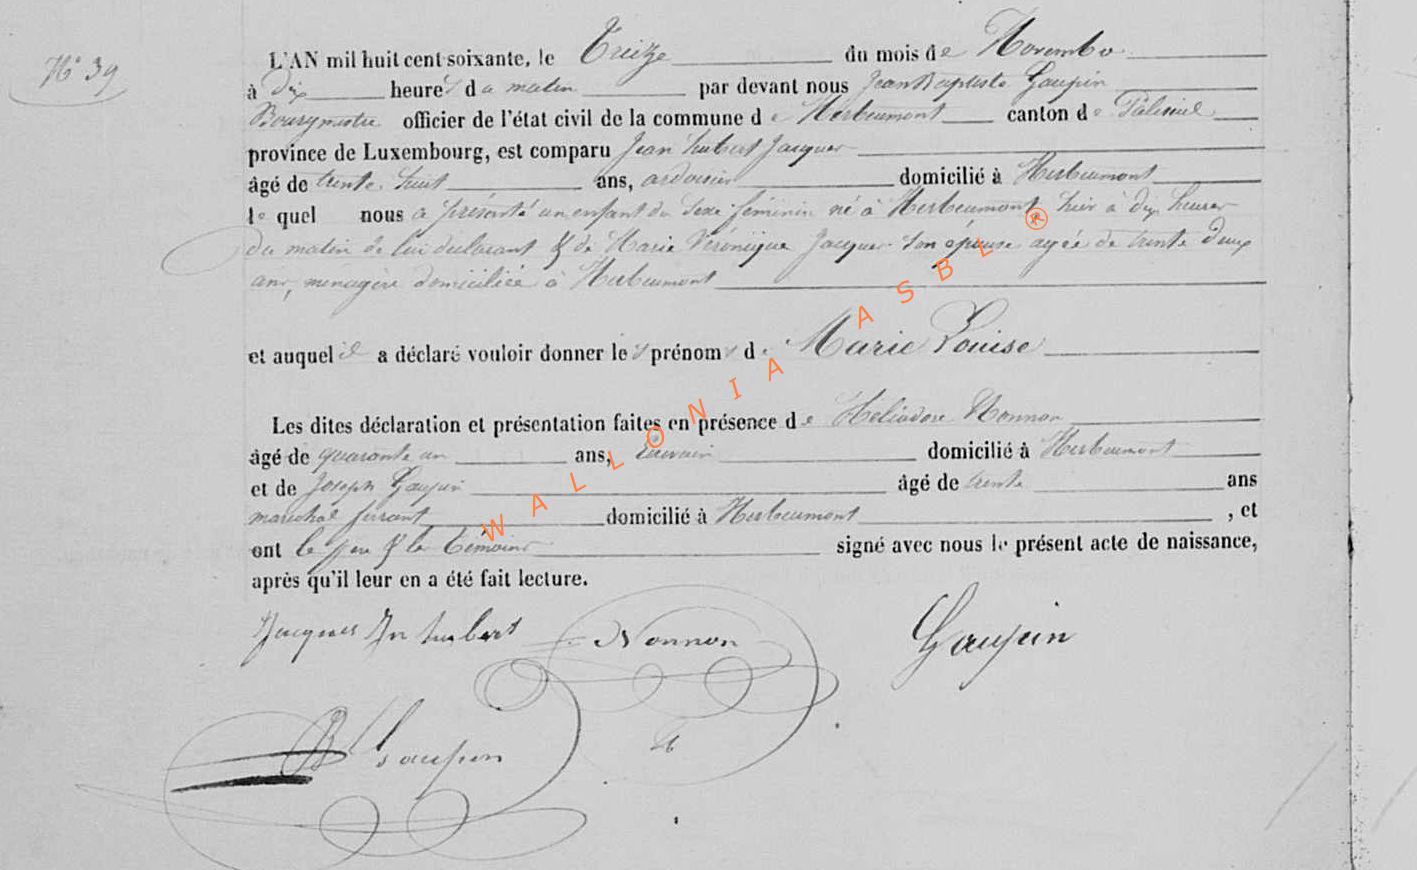 N° 39
L'AN mil huit cent soixante, le Treize du mois de Novembre
à dix heures du matin par devant nous Jean Baptiste Gaupin
Bourgmestre officier de l'état civil de la commune de Herbeumont canton de Paliseul
province de Luxembourg, est comparu Jean hubert Jacques
âgé de trente huit ans, ardoisier domicilié à Herbeumont
le quel nous a présenté un enfant du sexe féminin né à Herbeumont hier à dix heures
du matin de lui déclarant & de Marie Véronique Jacques son épouse agée de trente deux
ans, menagère domiciliée à Herbeumont
et auquel il a déclaré vouloir donner les prénoms de Marie Louise
Les dites déclaration et présentation faites en présence de Héliodore Nonnon
âgé de quarante un ans, domicilié à Herbeumont
et de Joseph Gaupin âgé de trente ans
maréchal ferrant domicilié à Herbeumont , et
ont le père & les témoins signé avec nous le présent acte de naissance,
après qu'il leur en a été fait lecture.
Jacques Jn hubert Nonnon Gaupin
JB Gaupin
WALLONIA ASBL ®